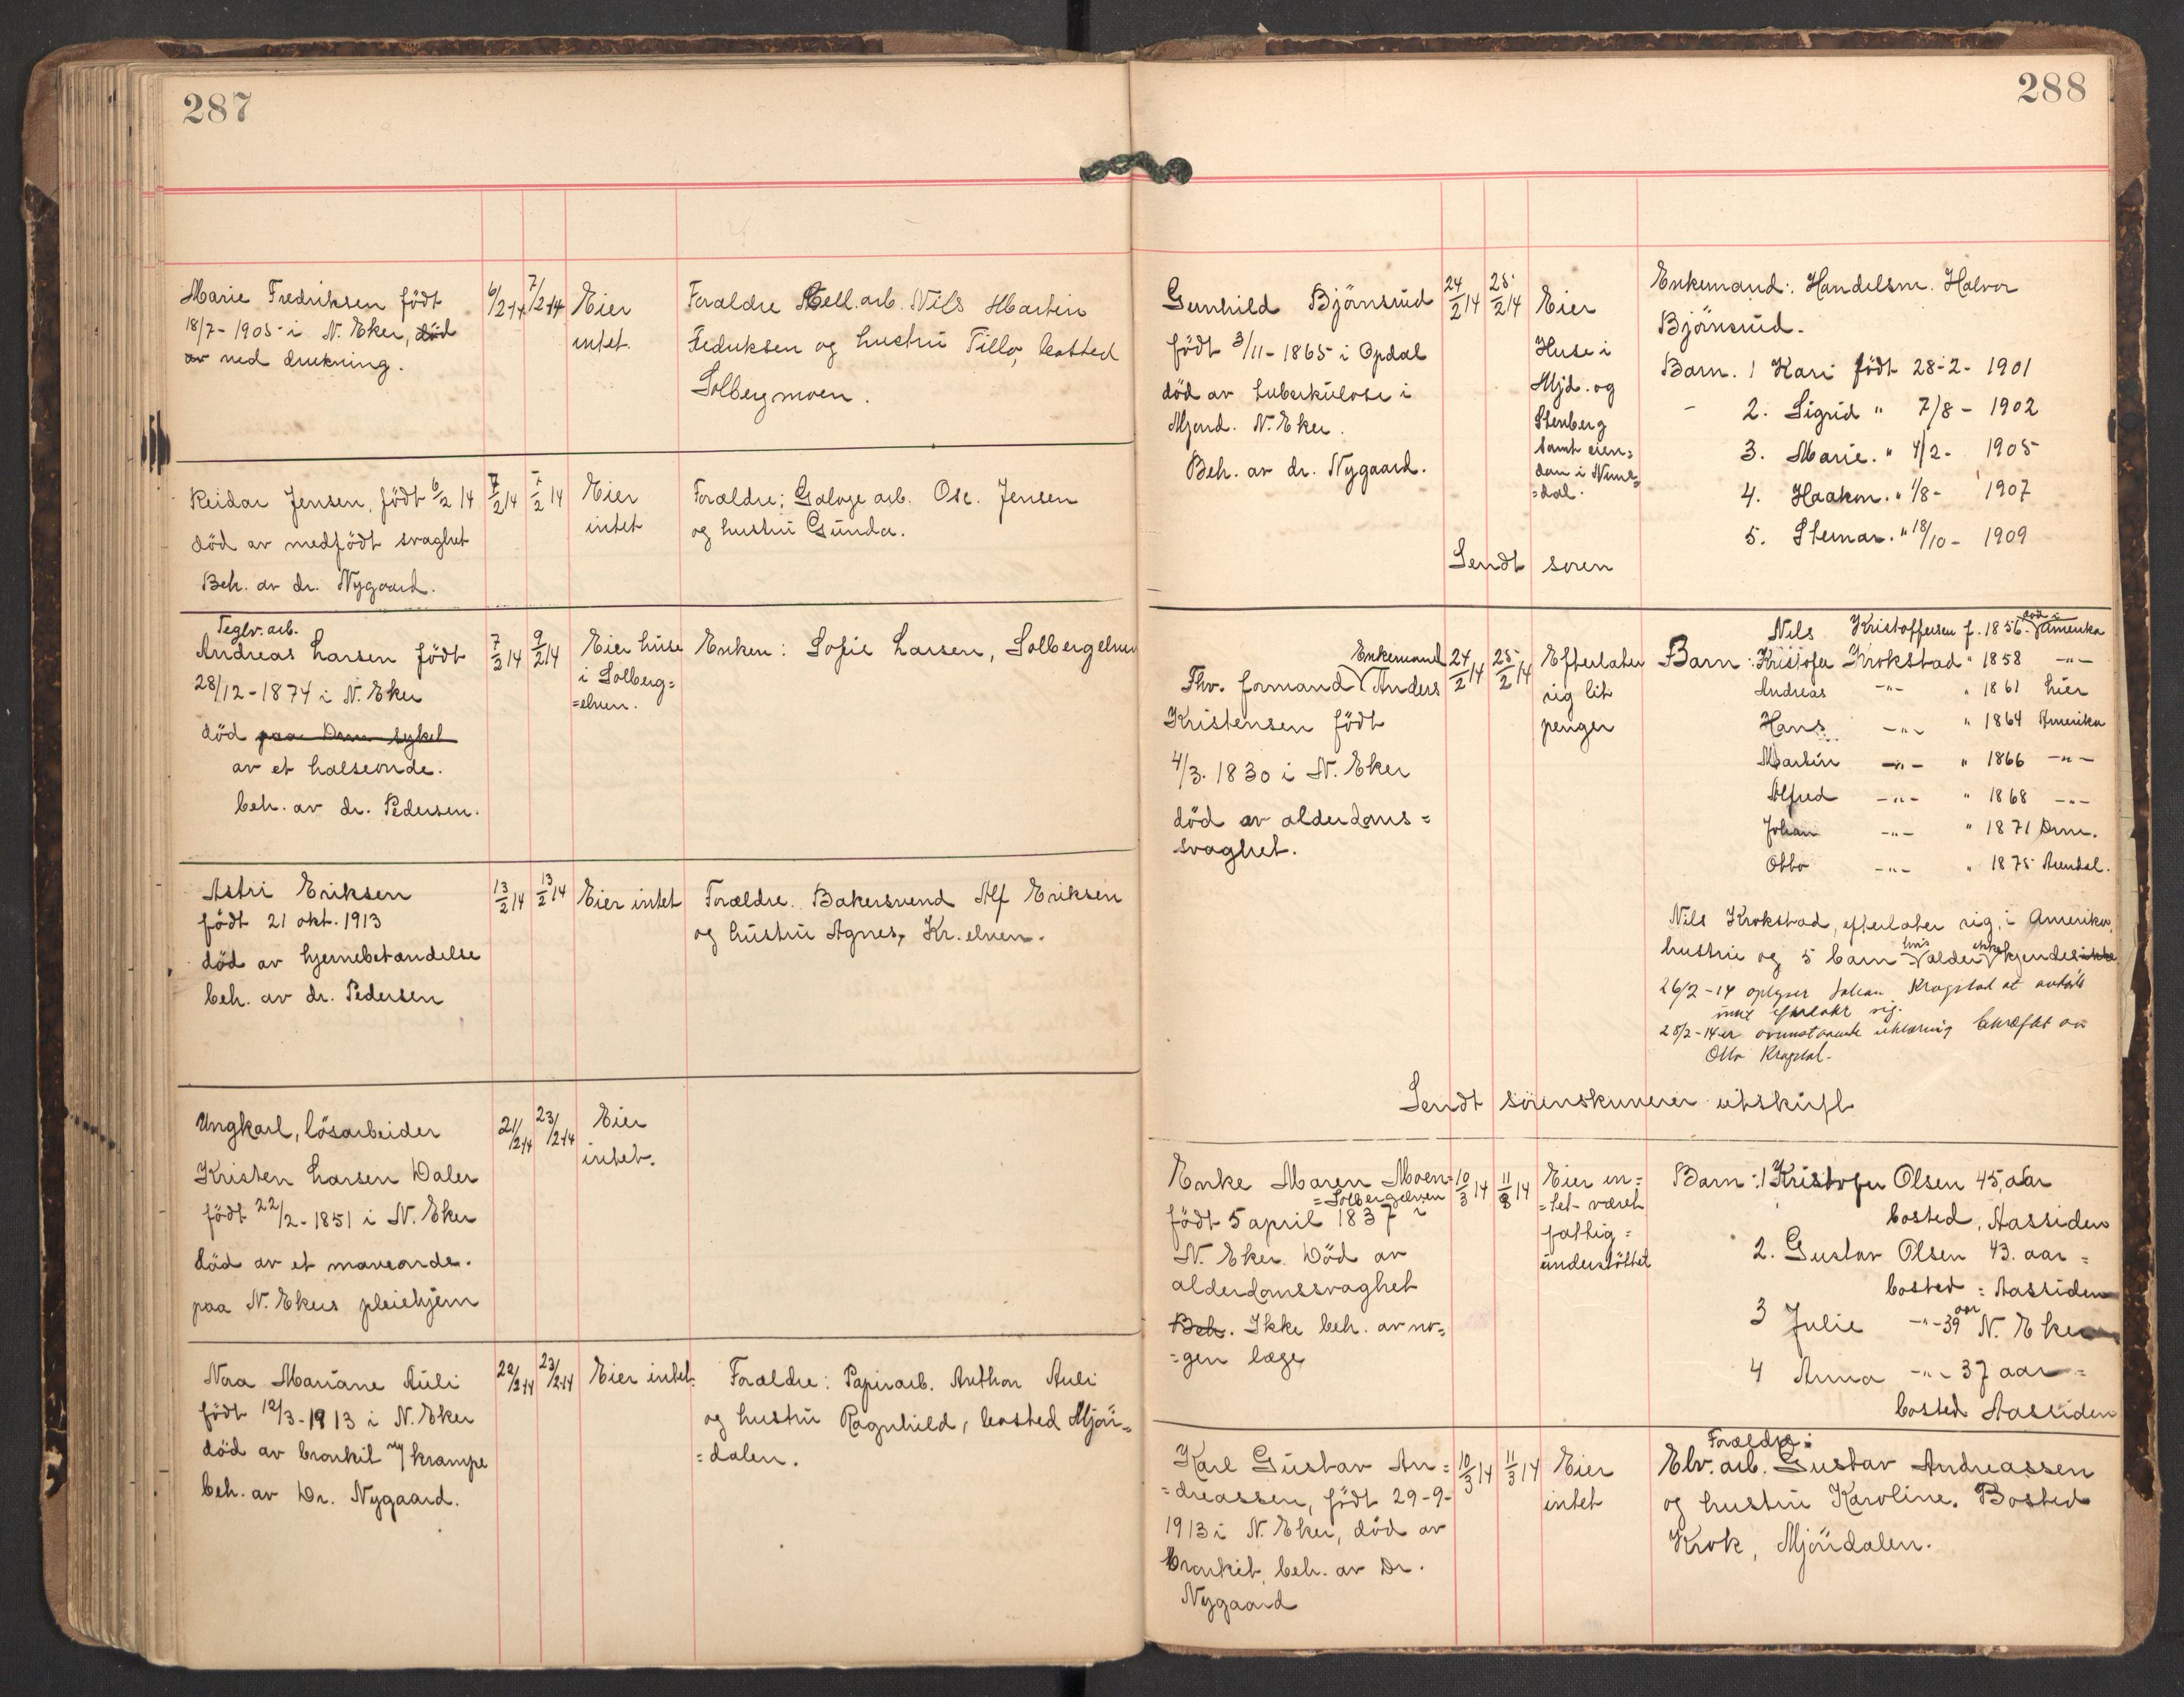 287
Marie Fredriksen født
18/7-1905 i N. Eker, død
av ned drukning.
6/2 14
7/2 14
Eier
intet.
Forældre Cell. arb. Nils Martin
Fredriksen og hustru Tilla, bosted
Solbergmoen.
Reidar Jensen, født 6/2 14
død av medfödt svaghet
Beh. av dr. Nygaard.
7/2 14
7/2 14
Eier
intet
Forældre; Galoge arb. Osc. Jensen
og hustru Gunda.
Teglv. arb.
Andreas Larsen født
28/12-1874 i N. Eker
død paa Dram sykeh
av et halseonde.
beh. av dr. Pedersen.
7/2 14
9/2 14
Eier huse
i Solberg=
=elven.
Enken: Sofie Larsen, Solbergelven
Astri Eriksen
født 21 okt. 1913
død av hjernebetændelse
beh. av dr. Pedersen
13/2 14
13/2 14
Eier intet
Forældre. Bakersvend Alf Eriksen
og hustru Agnes, Kr. elven.
Ungkarl, lösarbeider
Kristen Larsen Daler
født 22/2-1851 i N. Eker
død av et maveonde.
paa N. Ekers pleiehjem
21/2 14
23/2 14
Eier
intet.
Naa Mariane Auli
født 12/3-1913 i N. Eker
død av bronkit og krampe
beh. av Dr. Nygaard.
22/2 14
23/2 14
Eier intet.
Forældre: Papirarb. Anthon Auli
og hustru Ragnhild, bosted Mjön=
=dalen.
288
Gunhild Björnsrud
født 3/11-1865 i Opdal
død av tuberkulose i
Mjønd. N. Eker.
Beh. av dr. Nygaard.
24/2 14
25/2 14
Eier
Huse i
Mjd. og
Stenberg
samt eien=
dom i Nume=
=dal.
Enkemand: Handelsm. Halvor
Björnsrud.
Barn. 1 Kari født 28-2-1901
- 2. Sigrid " 7/8-1902
3. Marie. " 4/2-1905
4. Haakon. " 1/8-1907
5. Steinar. " 18/10-1909
Sendt soren
Enkemand
Fhv. formand Anders
Kristensen født
4/3. 1830 i N. Eker
död av alderdoms=
svaghet.
24/2 14
25/2 14
Efterlater
sig lit
penger
Nils Kristoffersen f. 1856. død i Amerika
Barn: Kristofer Krokstad " 1858 -"-
Andreas -"- " 1861 her
Hans -"- " 1864 Amerika
Martin -"- " 1866 -"-
Alfred -"- " 1868 -"-
Johan -"- " 1871 Drm.
Otto -"- " 1875 Arendal.
Nils Krokstad, efterlater sig i Amerika,
hustru og 5 barn hvis alder ikke kjendes ikke
26/2-14 oplyser Johan Krogstad at avdøde
intet efterlater sig.
28/2-14 er ovenstaaende erklæring bekræftet av
Otto Krogstad.
Sendt sörenskriveren utskrift
Enke Maren Moen=
=Solbergelven
født 5 april 1837 i
N. Eker. Död av
alderdomssvaghet
Beh. Ikke beh. av no=
=gen læge
10/3 14
11/3 14
Eier in=
=tet været
fattig=
understöttet
Barn: 1 Kristofer Olsen 45, aar
bosted, Aassiden
2. Gustav Olsen 43. aar=
bosted: Aassiden
3 Julie -"- 39 aar N. Eker
4 Anna -"- 37 aar=
bosted Aassiden
Karl Gustav An=
=dreassen, födt 29-9-
1913 i N. Eker, död av
bronkit, beh. av Dr.
Nygaard
10/3 14
11/3 14
Eier
intet
Forældre:
Elv. arb. Gustav Andreassen
og hustru Karoline. Bosted
Krok, Mjöndalen.